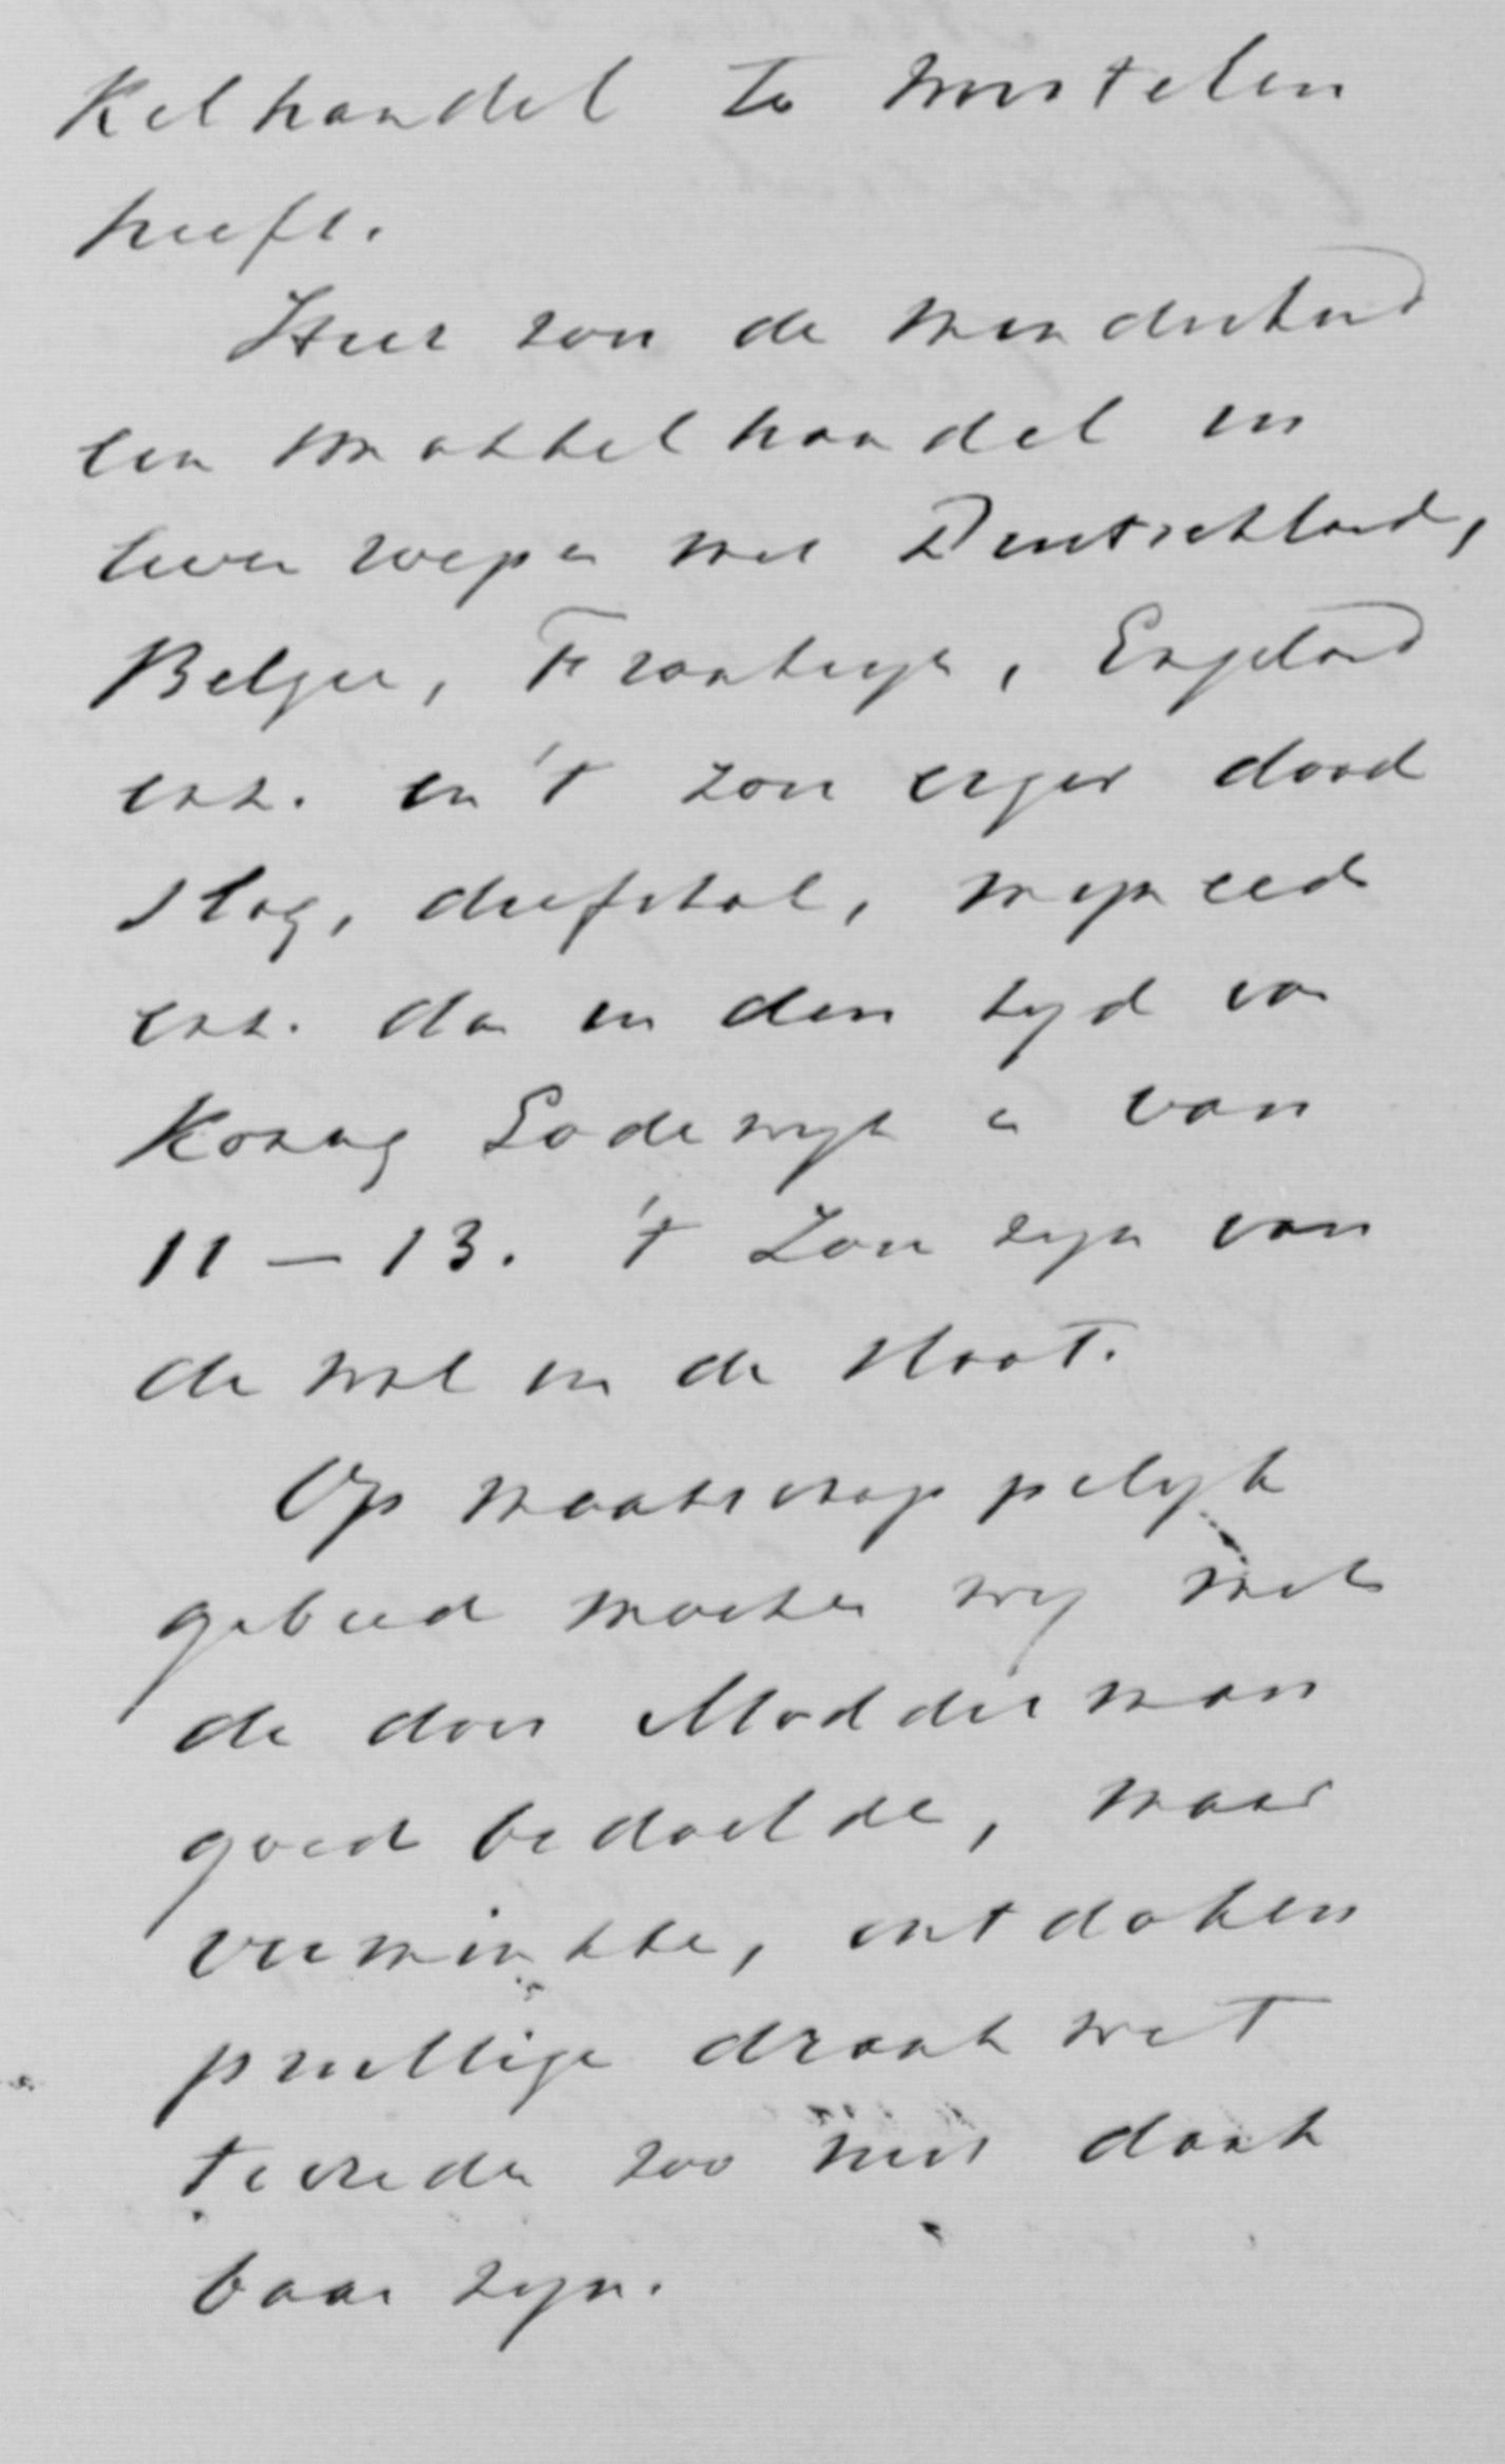 kelhandel te worstelen
heeft.
Hier zou de minderheid
een smokkelhandel in
leven roepen met Deutschland,
Belgie, Frankrijk, Engeland
enz. en 't zou erger dood
slag, diefstal, mijneed
enz. dan in den tijd van
Koning Lodewijk en van
11 – 13. 't Zou zijn van
de wal in de sloot.
Op maatschappelijk
gebied moeten wij met
de door Modderman
goed bedoelde, maar
verminkte, ontdoken
prullige drankwet
tevreden zoo niet dank
baar zijn.